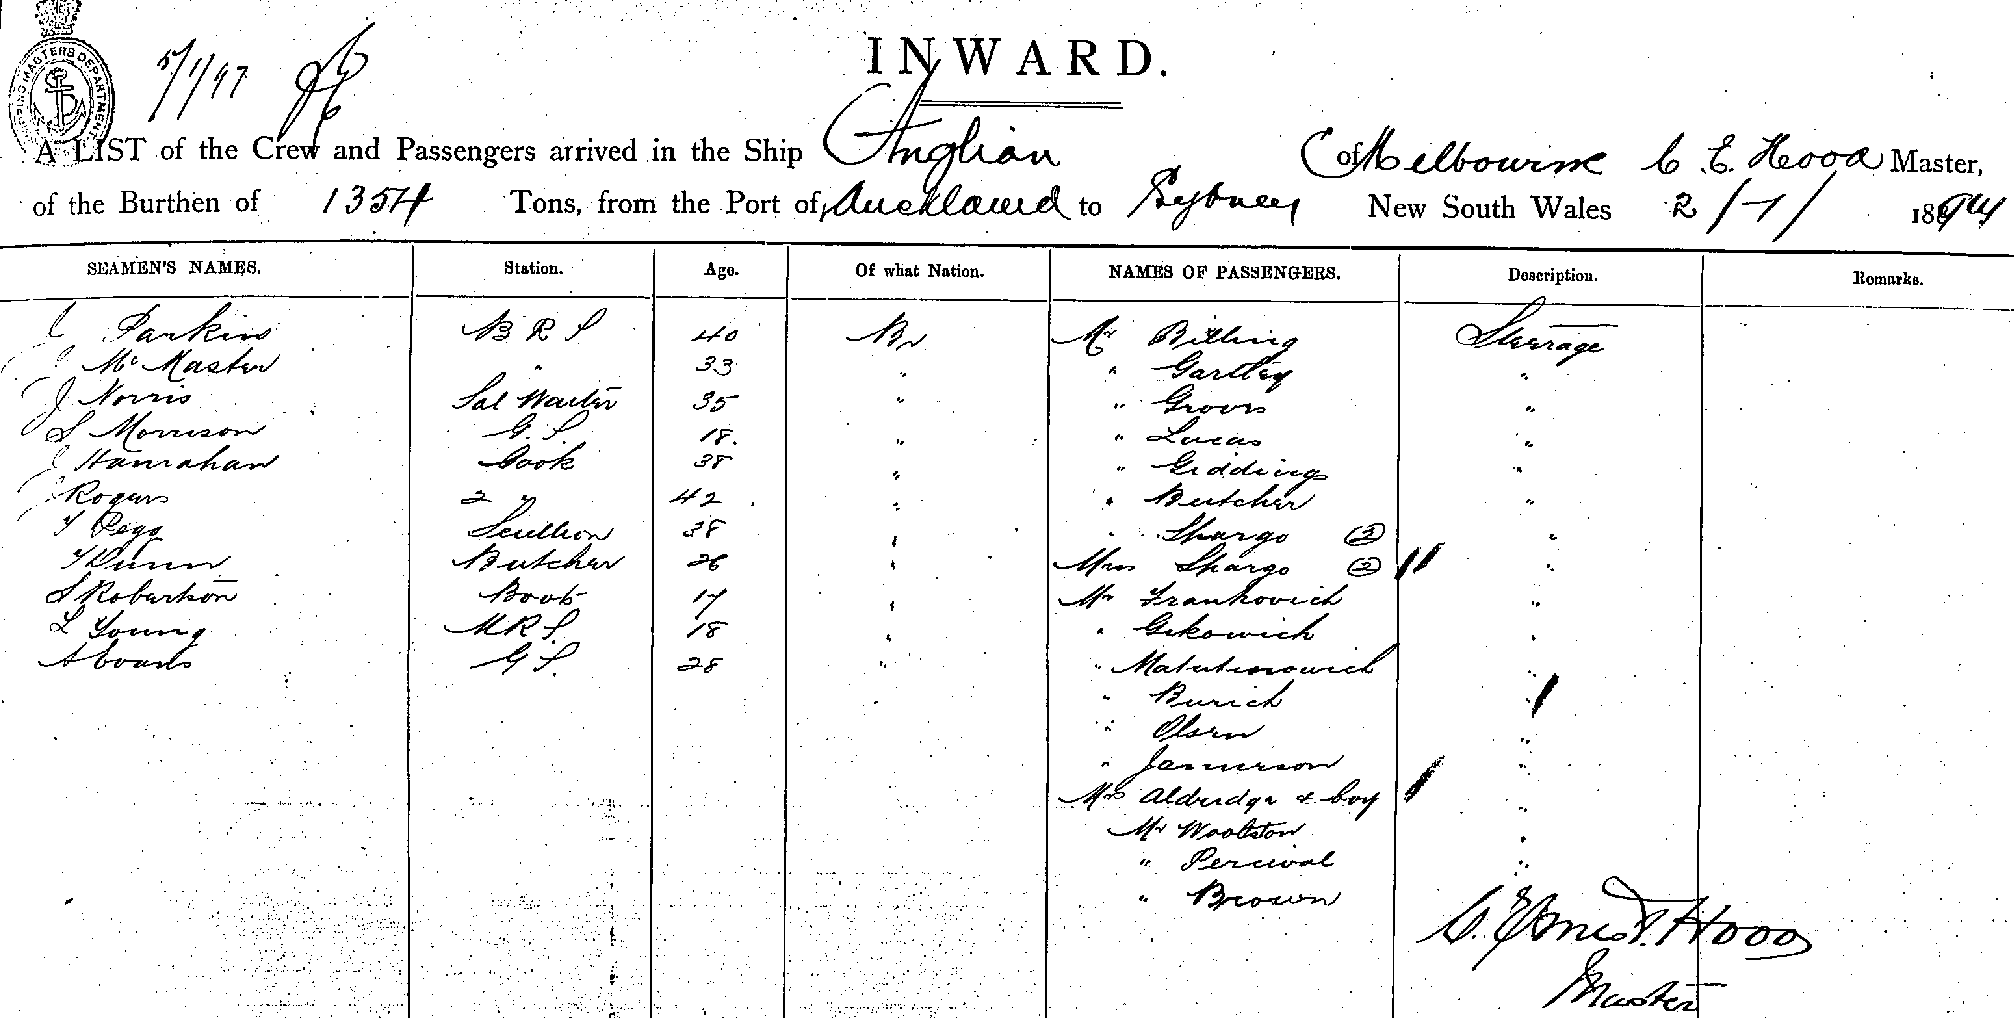 SHIPPING MASTERS DEPARTMENT
5/1/97
INWARD.
A LIST of the Crew and Passengers arrived in the Ship Anglian of Melbourne C. E. Hood Master,
of the Burthen of 1354 Tons, from the Port of Auckland to Sydney New South Wales 2/1/ 18
SEAMEN'S NAMES. Station. Age. Of what Nation. NAMES OF PASSENGERS. Description. Remarks.
J Parkins B R S 40 Br Mr Billing Steerage
J McMaster " 33 " " Gartley "
J Norris Sal Waiter 35 " " Groves "
S Morrison G. S. 18. " " Lucas "
J Hanrahan Cook 38 " " Gidding "
J Rogers 2 " 42 " " Butcher "
T Pegg Scullion 38 " " Shargo (2) "
T Dunn Butcher 26 " Mrs Shargo (2) "
S Robertson Boots 17 " Mr Frankovich "
L Young M R S. 18 " " Gekowich "
A Evans G S. 28 " " Matutinowich "
" Burich "
" Olsen "
" Jamieson "
Mrs Aldridge & boy "
Mr Woolston "
" Percival "
" Brown
C. Ernest. Hood
Master